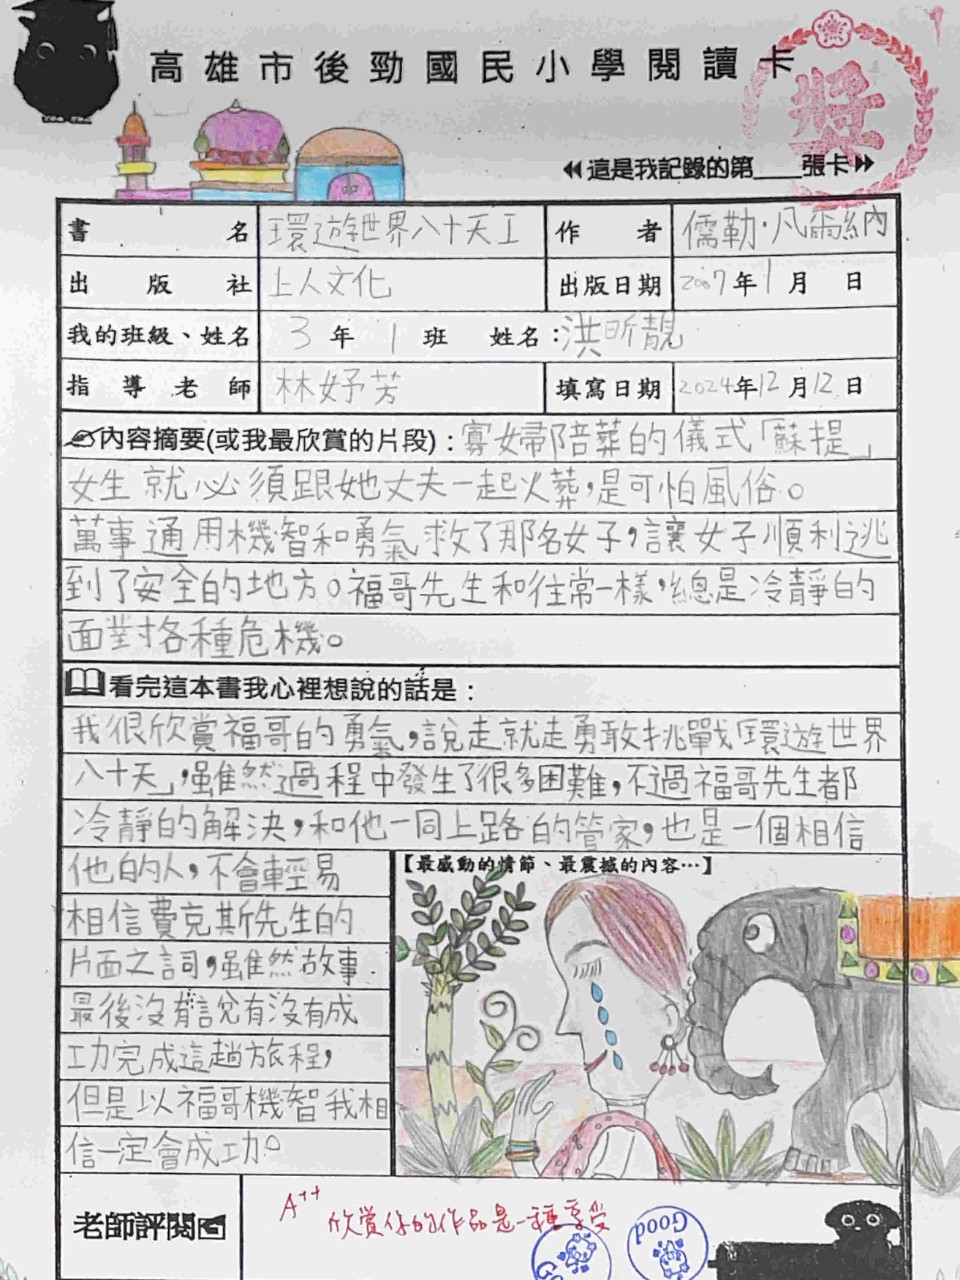 高雄市後勁國民小學閱讀卡
獎
這是我記錄的第___張卡
書名 環遊世界八十天工 作者 儒勒·凡爾納
出版社 上人文化 出版日期 2007年1月 日
我的班級、姓名 3年1班 姓名:洪昕靚
指導老師 林妤芳 填寫日期 2024年12月12日
內容摘要(或我最欣賞的片段):寡婦陪葬的儀式「蘇提」
女生就必須跟她丈夫一起火葬,是可怕風俗。
萬事通用機智和勇氣救了那名女子,讓女子順利逃
到了安全的地方。福哥先生和往常一樣,總是冷靜的
面對各種危機。
看完這本書我心裡想說的話是:
我很欣賞福哥的勇氣,說走就走勇敢挑戰「環遊世界
八十天」,雖然過程中發生了很多困難,不過福哥先生都
冷靜的解決,和他一同上路的管家,也是一個相信
他的人,不會輕易
相信費克斯先生的
片面之詞,雖然故事
最後沒有說有沒有成
功完成這趟旅程,
但是以福哥機智我相
信一定會成功。
【最感動的情節、最震撼的內容…】
老師評閱
A++
欣賞你的作品是一種享受
Good
Go